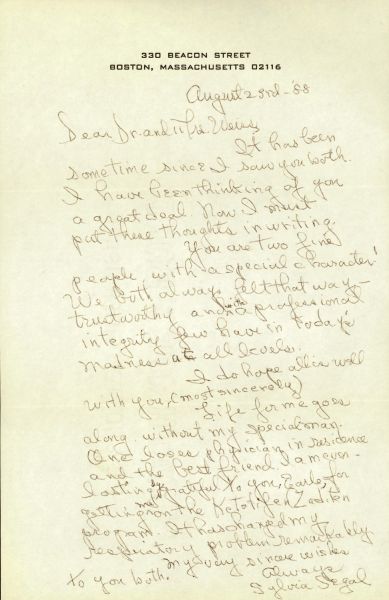 330 BEACON STREET
BOSTON, MASSACHUSETTS 02116
August 23rd - '88
Dear Dr. and Mrs.
It has been
sometime since I saw you both.
I have been thinking of you
a great deal. Now I must
put these thoughts in writing.
You are two fine
people with a special character!
We both always felt that way -
trustworthy and with a professional
integrity few have in today's
madness at all levels.
I do hope all is well
with you, (most sincerely)
Life for me goes
along without my special man.
One loses physician in residence
and the best friend. I am ever-
lastingly grateful to you, for
getting me on the
program. It has changed my
respiratory problem remarkably.
My very sincere wishes
to you both.
Always
Sylvia Segal